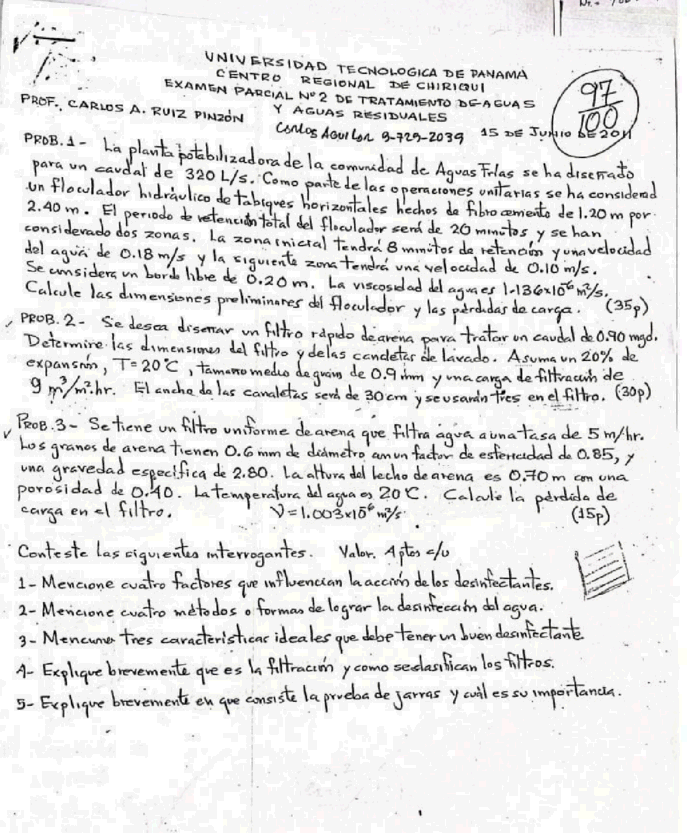 UNIVERSIDAD TECNOLOGICA DE PANAMA
CENTRO REGIONAL DE CHIRIQUI
EXAMEN PARCIAL Nº2 DE TRATAMIENTO DE AGUAS
Y AGUAS RESIDUALES
97/100
PROF. CARLOS A. RUIZ PINZÓN
Carlos Aguilar 9-729-2039 15 DE JUNIO DE 2011
PROB. 1- La planta potabilizadora de la comunidad de Aguas Frías se ha diseñado
para un caudal de 320 L/s. Como parte de las operaciones unitarias se ha considerad
un floculador hidráulico de tabiques horizontales hechos de fibrocemento de 1.20 m por
2.40 m. El periodo de retención total del floculador será de 20 minutos y se han
considerado dos zonas. La zona inicial tendrá 8 minutos de retención y una velocidad
del agua de 0.18 m/s y la siguiente zona tendrá una velocidad de 0.10 m/s.
Se considera un borde libre de 0.20 m. La viscosidad del agua es 1.136x10⁻⁶ m²/s.
Calcule las dimensiones preliminares del floculador y las pérdidas de carga. (35p)
PROB. 2- Se desea diseñar un filtro rápido de arena para tratar un caudal de 0.90 mgd.
Determine las dimensiones del filtro y de las canaletas de lavado. Asuma un 20% de
expansión, T=20°C, tamaño medio de grano de 0.9 mm y una carga de filtración de
9 m³/m².hr. El ancho de las canaletas será de 30 cm y se usarán tres en el filtro. (30p)
PROB. 3- Se tiene un filtro uniforme de arena que filtra agua a una tasa de 5 m/hr.
Los granos de arena tienen 0.6 mm de diámetro con un factor de esfericidad de 0.85, y
una gravedad específica de 2.80. La altura del lecho de arena es 0.70 m con una
porosidad de 0.40. La temperatura del agua es 20°C. Calcule la pérdida de
carga en el filtro. ν=1.003x10⁻⁶ m²/s (15p)
Conteste las siguientes interrogantes. Valor. 4 ptos c/u
1- Mencione cuatro factores que influencian la acción de los desinfectantes.
2- Mencione cuatro métodos o formas de lograr la desinfección del agua.
3- Mencione tres características ideales que debe tener un buen desinfectante
4- Explique brevemente que es la filtración y como se clasifican los filtros.
5- Explique brevemente en que consiste la prueba de jarras y cuál es su importancia.